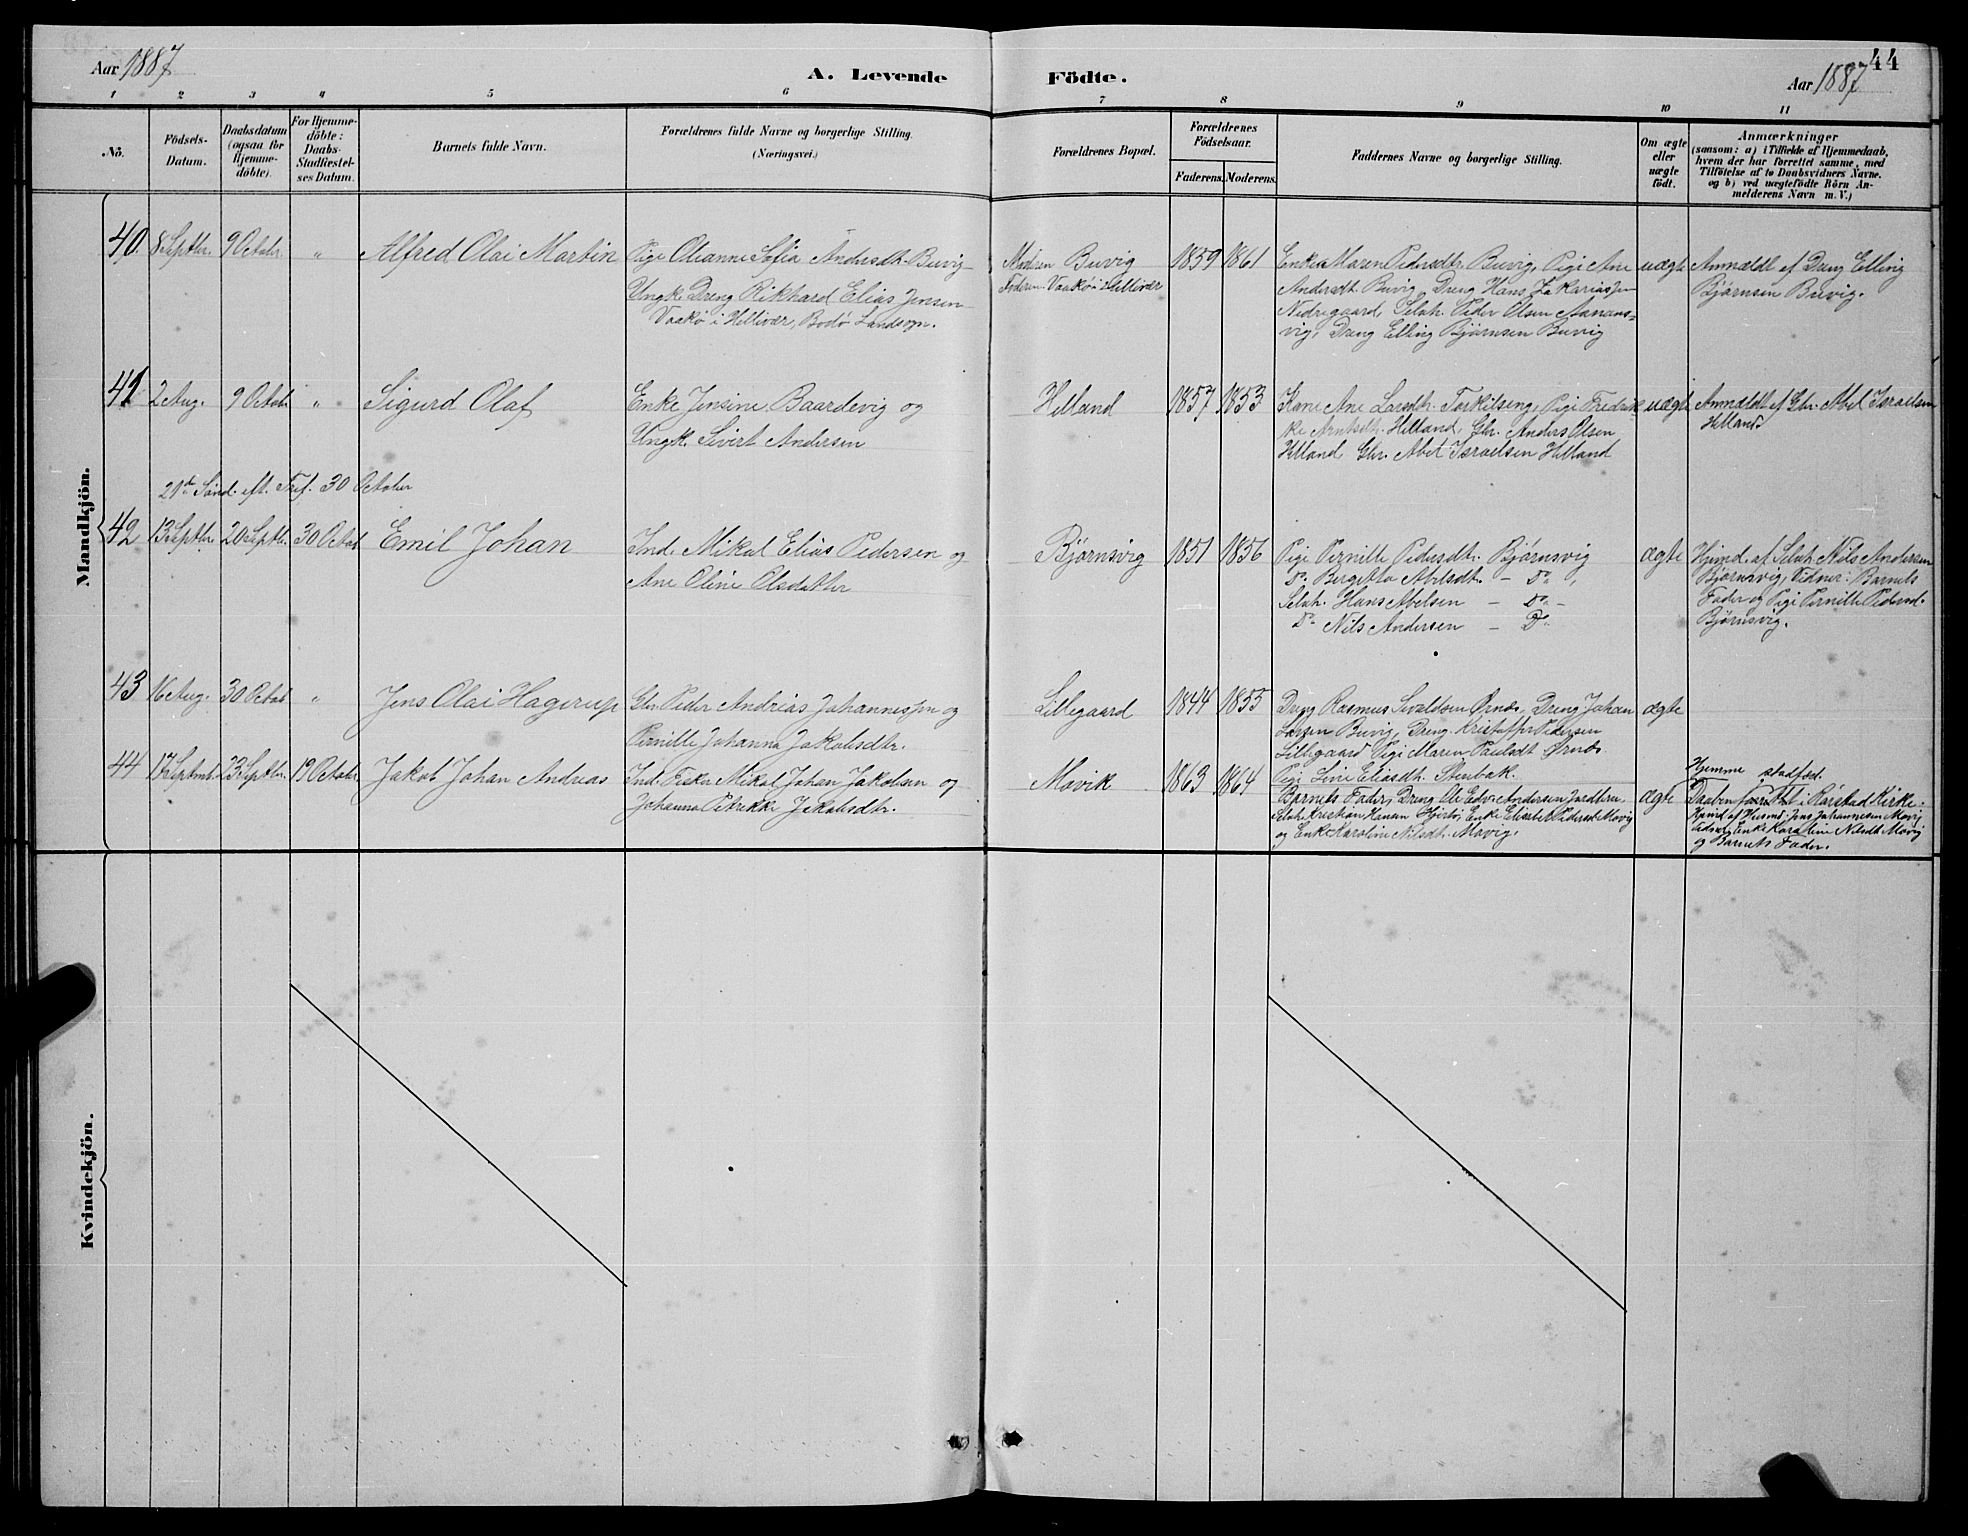 Aar 1887
A. Levende Födte.
44
Aar 1887
1 2 3 4 5 6 7 8 9 10 11
No.
Födsels-Datum.
Daabsdatum (ogsaa for Hjemme-döbte).
For Hjemme-döbte: Daabs-Stadfæstel-ses Datum.
Barnets fulde Navn.
Forældrenes fulde Navne og borgerlige Stilling.
(Næringsvei.)
Forældrenes Bopæl.
Forældrenes Födselsaar.
Faderens. Moderens.
Faddernes Navne og borgerlige Stilling.
Om ægte eller uægte födt.
Anmærkninger
(saasom: a) i Tilfælde af Hjemmedaab,
hvem der har forrettet samme, med
Tilföielse af to Daabsvidners Navne,
og b) ved uægtefödte Börn An-
melderens Navn m. V.)
Mandkjön.
40. 8 Septbr. 9 Octobr. " Alfred Olai Martin
Pige Olianne Sofia Andersdt. Buvig
Ungk. Dreng Rikhard Elias Jensen
Vaakø i Hellivær, Bodø Landsogn.
Moderen Buvig
Faderen Vaakø i Hellivær
1859 1861
Enke Maren Pedersdtr. Buvig, Pige Ane
Andersdt. Buvig, Dreng Hans Zakariassen
Nedregaard, Selvh. Peder Olsen
vig, Dreng Elling Bjørnsen Buvig
uægte
Anmældt af Dreng Elling
Bjørnsen Buvig.
41 2 Aug. 9 Octobr " Sigurd Olaf
Enke Jensine Baardevig og
Ungk. Sivert Andersen
Helland
1857 1853
Kone Ane Larsdtr. Torkilseng, Pige Fredrik-
ke Arntsdtr. Helland, Gbr. Anders Olsen
Helland, Gbr. Abel Israelsen Helland
uægte
Anmældt af Gbr. Abel Israelsen
Helland
21de Sønd. eft. Tref. 30 October
42 13 Septbr. 20 Septbr. 30 Octob Emil Johan
Ind. Mikal Elias Pedersen og
Ane Oline Olsdatter
Bjørnsvig
1851 1856
Pige Pernille Pedersdtr. Bjørnsvig
Do Bergitta Abelsdt. - Do
Selvh. Hans Abelsen - Do -
Do Nils Andersen - Do
ægte
Hjemd. af Selvh. Nils Andersen
Bjørnsvig, Vidner: Barnets
Fader og Pige Pernille Pedersd.
Bjørnsvig.
43 16 Aug. 30 Octob " Jens Olai Hagerup
Gbr. Peder Andrias Johannessen og
Pernille Johanna Jakobsdtr.
Lillegaard
1844 1855
Dreng Rasmus Sivaldsen Ørnes, Dreng Johan
Larsen Buvig, Dreng Kristoffer Pedersen
Lillegaard Pige Maren Paulsdt Ørnes
Pige Line Eliasdt. Stenbak.
ægte
44 17 Septmb. 23 Septbr. 19 October Jakob Johan Andreas
Ind. Fisker Mikal Johan Jakobsen og
Johanna Petrikke Jakobsdtr.
Movik
1863 1864
Barnets Fader, Dreng Ole Edv. Andersen
Selvh. Kristian Hansen Enke Elisabet Pedersd. Movig
og Enke Karoline Nilsdt. Movig.
ægte
Hjemme stadfæst.
Daaben i Rørstad Kirke.
Hjemd. af Husmd. Jens Johannesen Movig
Vidner, Enke Karoline Nilsdt Movig
og Barnets Fader.
Kvindekjön.